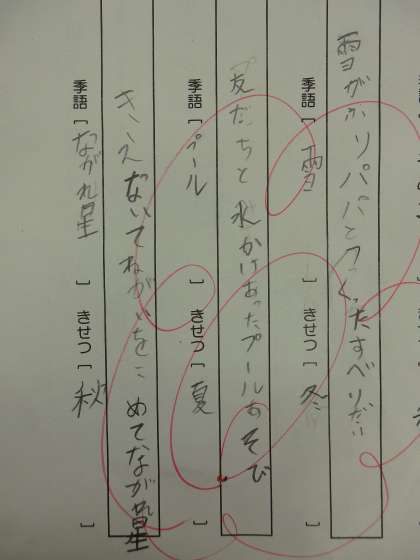 雪がふりパパとつくったすべりだい
季語［雪］きせつ［冬］
友だちと水かけあったプールあそび
季語［プール］きせつ［夏］
きえないでねがいをこめてながれ星
季語［ながれ星］きせつ［秋］